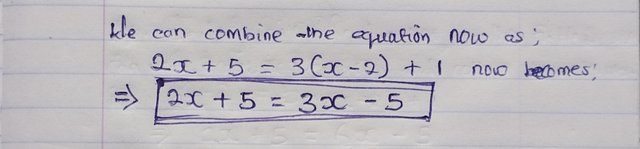 We can combine the equation now as;
2x + 5 = 3(x-2) + 1 now becomes;
⇒ 2x + 5 = 3x - 5